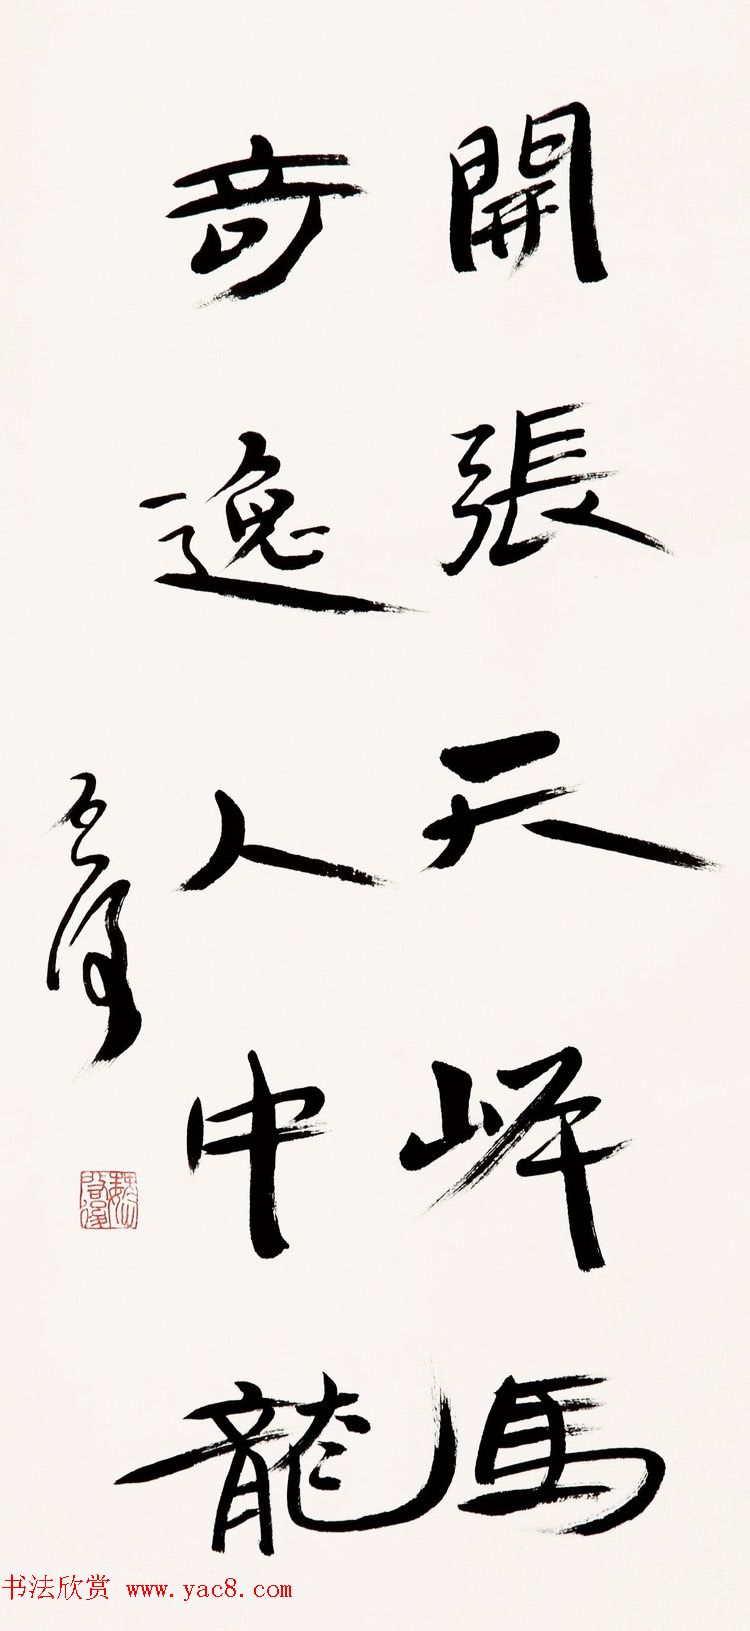 開張天岸馬
奇逸人中龍
啟後
魏啟後
书法欣赏 www.yac8.com